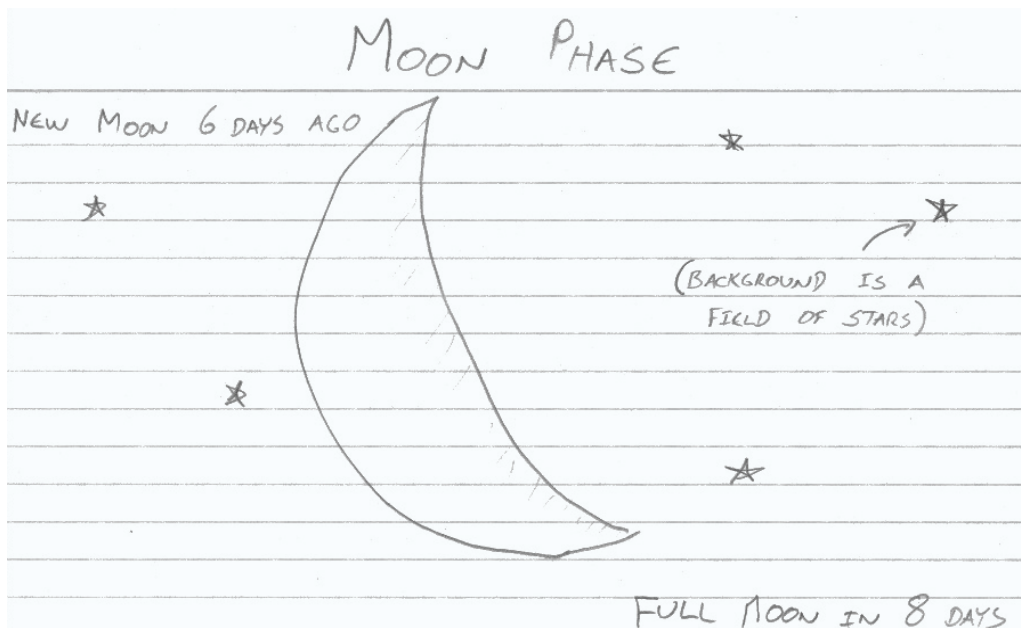 MOON PHASE
NEW MOON 6 DAYS AGO
(BACKGROUND IS A
FIELD OF STARS)
FULL MOON IN 8 DAYS